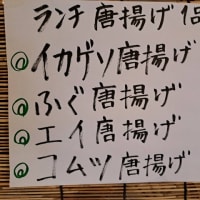 ランチ唐揚げ
◎イカゲソ唐揚げ
◎ふぐ唐揚げ
◎エイ唐揚げ
◎コムツ唐揚げ